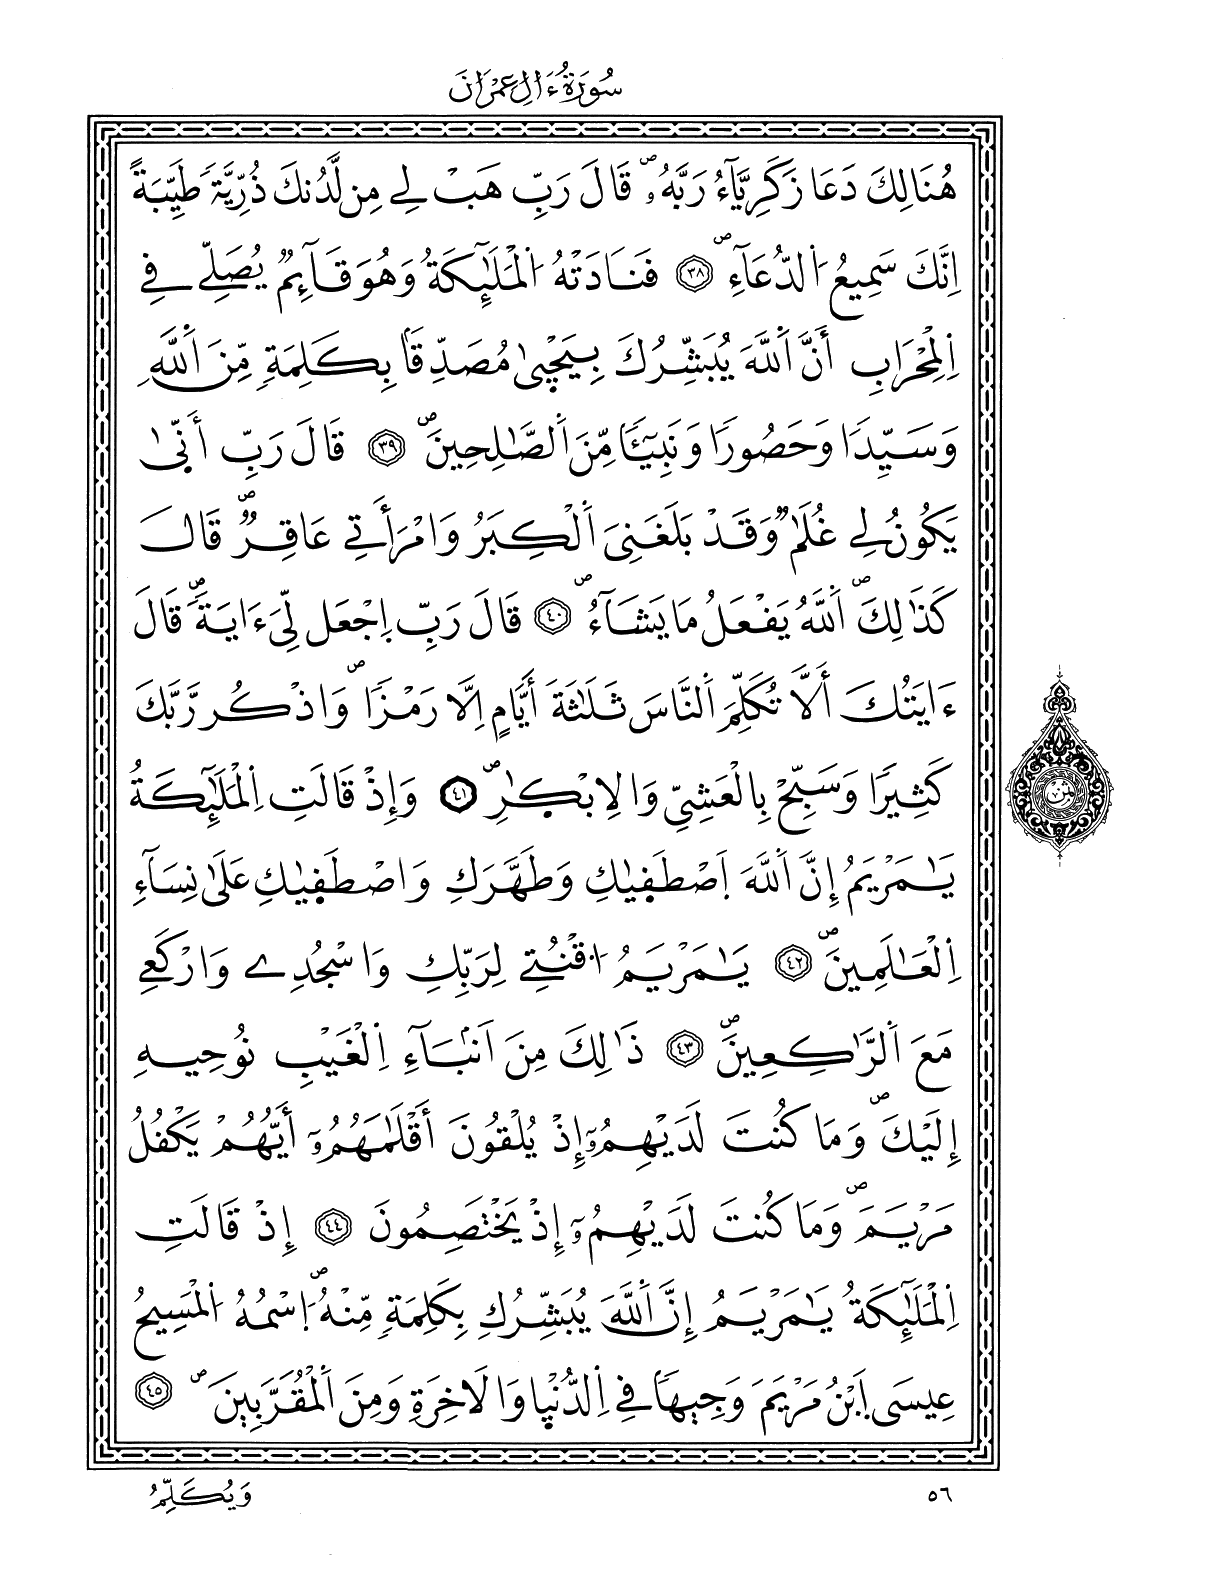 سُورَةُ ءَالِ عِمْرَانَ
هُنَالِكَ دَعَا زَكَرِيَّآءُ رَبَّهُۥۖ قَالَ رَبِّ هَبْ لِے مِن لَّدُنكَ ذُرِّيَّةٗ طَيِّبَةًۖ
اِنَّكَ سَمِيعُ اُ۬لدُّعَآءِۖ ٣٨ فَنَادَتْهُ اُ۬لْمَلَٰٓئِكَةُ وَهُوَ قَآئِمٞ يُصَلِّے فِے
اِ۬لْمِحْرَابِ أَنَّ اَ۬للَّهَ يُبَشِّرُكَ بِيَحْيَىٰ مُصَدِّقاَۢ بِكَلِمَةٖ مِّنَ اَ۬للَّهِ
وَسَيِّداٗ وَحَصُوراٗ وَنَبِيٓـٔاٗ مِّنَ اَ۬لصَّٰلِحِينَۖ ٣٩ قَالَ رَبِّ أَنّ۪ىٰ
يَكُونُ لِے غُلَٰمٞ وَقَدْ بَلَغَنِيَ اَ۬لْكِبَرُ وَامْرَأَتِے عَاقِرٞۖ قَالَ
كَذَٰلِكَۖ اَ۬للَّهُ يَفْعَلُ مَا يَشَآءُۖ ٤٠ قَالَ رَبِّ اِ۪جْعَل لِّيَ ءَايَةٗۖ قَالَ
ءَايَتُكَ أَلَّا تُكَلِّمَ اَ۬لنَّاسَ ثَلَٰثَةَ أَيَّامٍ اِلَّا رَمْزاٗۖ وَاذْكُر رَّبَّكَ
كَثِيراٗ وَسَبِّحْ بِالْعَشِيِّ وَالِابْكٰ۪رِۖ ٤١ وَإِذْ قَالَتِ اِ۬لْمَلَٰٓئِكَةُ
يَٰمَرْيَمُ إِنَّ اَ۬للَّهَ اَ۪صْطَف۪يٰكِ وَطَهَّرَكِ وَاصْطَف۪يٰكِ عَلَىٰ نِسَآءِ
اِ۬لْعَٰلَمِينَۖ ٤٢ يَٰمَرْيَمُ اُ۟قْنُتِے لِرَبِّكِ وَاسْجُدِے وَارْكَعِے
مَعَ اَ۬لرَّٰكِعِينَۖ ٤٣ ذَٰلِكَ مِنَ اَنۢبَآءِ اِ۬لْغَيْبِ نُوحِيهِ
إِلَيْكَۖ وَمَا كُنتَ لَدَيْهِمُۥٓ إِذْ يُلْقُونَ أَقْلَٰمَهُمُۥٓ أَيُّهُمْ يَكْفُلُ
مَرْيَمَۖ وَمَا كُنتَ لَدَيْهِمُۥٓ إِذْ يَخْتَصِمُونَ ٤٤ إِذْ قَالَتِ
اِ۬لْمَلَٰٓئِكَةُ يَٰمَرْيَمُ إِنَّ اَ۬للَّهَ يُبَشِّرُكِ بِكَلِمَةٖ مِّنْهُۖ اُ۪سْمُهُ اُ۬لْمَسِيحُ
عِيسَى اَ۪بْنُ مَرْيَمَ وَجِيهاٗ فِے اِ۬لدُّنْي۪ا وَالَاخِرَةِ وَمِنَ اَ۬لْمُقَرَّبِينَۖ ٤٥
ثمن
٥٦
وَيُكَلِّمُ